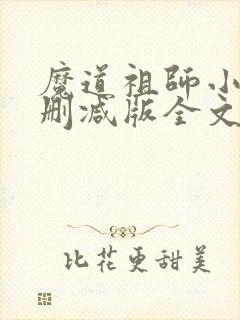 魔道祖师小
删减版全文
比花更甜美